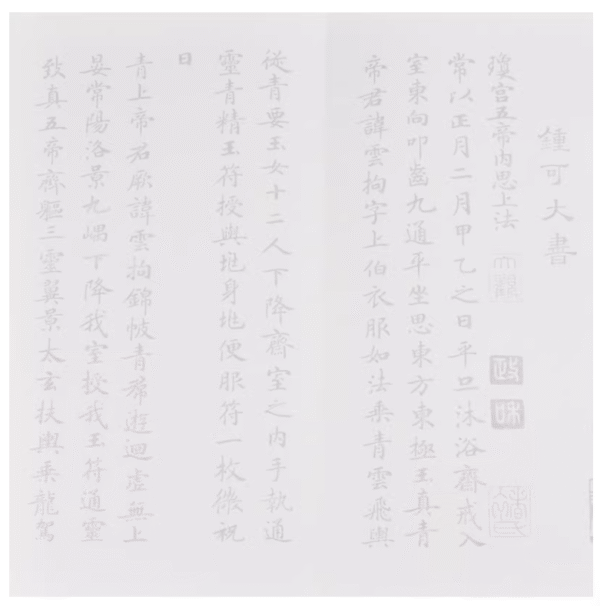 鍾可大書
瓊宮五帝內思上法
政 和
常以正月二月甲乙之日平旦沐浴齋戒入
室東向叩齒九通平坐思東方東極玉真青
帝君諱雲拘字上伯衣服如法乘青雲飛輿
從青要玉女十二人下降齋室之內手執通
靈青精玉符授與兆身兆便服符一枚微祝
曰
青上帝君厥諱雲拘錦帔青帬遊迴虛無上
晏常陽洛景九嵎下降我室授我玉符通靈
致真五帝齊軀三靈翼景太玄扶輿乘龍駕